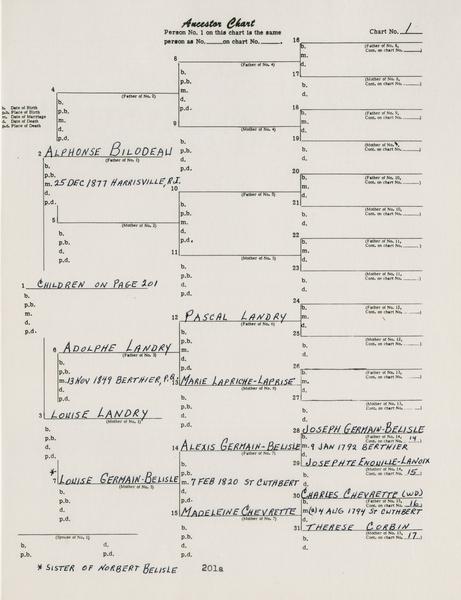 Ancestor Chart
Person No. 1 on this chart is the same
person as No. ___ on chart No. ___.
Chart No. 1
b. Date of Birth
p.b. Place of Birth
m. Date of Marriage
d. Date of Death
p.d. Place of Death
16
(Father of No. 8,
Cont. on chart No. ___)
8
(Father of No. 4)
b.
p.b.
m.
d.
p.d.
17
(Mother of No. 8,
Cont. on chart No. ___)
4
(Father of No. 2)
b.
p.b.
m.
d.
p.d.
18
(Father of No. 9,
Cont. on chart No. ___)
9
(Mother of No. 4)
b.
p.b.
d.
p.d.
19
(Mother of No. 9,
Cont. on chart No. ___)
2 ALPHONSE BILODEAU
(Father of No. 1)
b.
p.b.
m. 25 DEC 1877 HARRISVILLE, R.I.
d.
p.d.
20
(Father of No. 10,
Cont. on chart No. ___)
10
(Father of No. 5)
b.
p.b.
m.
d.
p.d.
21
(Mother of No. 10,
Cont. on chart No. ___)
5
(Mother of No. 2)
b.
p.b.
d.
p.d.
22
(Father of No. 11,
Cont. on chart No. ___)
11
(Mother of No. 5)
b.
p.b.
d.
p.d.
23
(Mother of No. 11,
Cont. on chart No. ___)
1 CHILDREN ON PAGE 201
b.
p.b.
m.
d.
p.d.
24
(Father of No. 12,
Cont. on chart No. ___)
12 PASCAL LANDRY
(Father of No. 6)
b.
p.b.
m.
d.
p.d.
25
(Mother of No. 12,
Cont. on chart No. ___)
6 ADOLPHE LANDRY
(Father of No. 3)
b.
p.b.
m. 13 NOV 1849 BERTHIER, P.Q.
d.
p.d.
26
(Father of No. 13,
Cont. on chart No. ___)
13 MARIE LAPRICHE-LAPRISE
(Mother of No. 6)
b.
p.b.
d.
p.d.
27
(Mother of No. 13,
Cont. on chart No. ___)
3 LOUISE LANDRY
(Mother of No. 1)
b.
p.b.
d.
p.d.
28 JOSEPH GERMAIN-BELISLE
(Father of No. 14,
Cont. on chart No. 14)
m. 9 JAN 1792 BERTHIER
14 ALEXIS GERMAIN-BELISLE
(Father of No. 7)
b.
p.b.
m. 7 FEB 1820 ST CUTHBERT
d.
p.d.
29 JOSEPHTE ENOUILLE-LANOIX
(Mother of No. 14,
Cont. on chart No. 15)
* 7 LOUISE GERMAIN-BELISLE
(Mother of No. 3)
b.
p.b.
d.
p.d.
30 CHARLES CHEVRETTE (WD)
(Father of No. 15,
Cont. on chart No. 16)
4 AUG 1794 ST CUTHBERT
15 MADELEINE CHEVRETTE
(Mother of No. 7)
b.
p.b.
d.
p.d.
31 THERESE CORBIN
(Mother of No. 15,
Cont. on chart No. 17)
(Spouse of No. 1)
b. d.
p.b. p.d.
* SISTER OF NORBERT BELISLE
201a